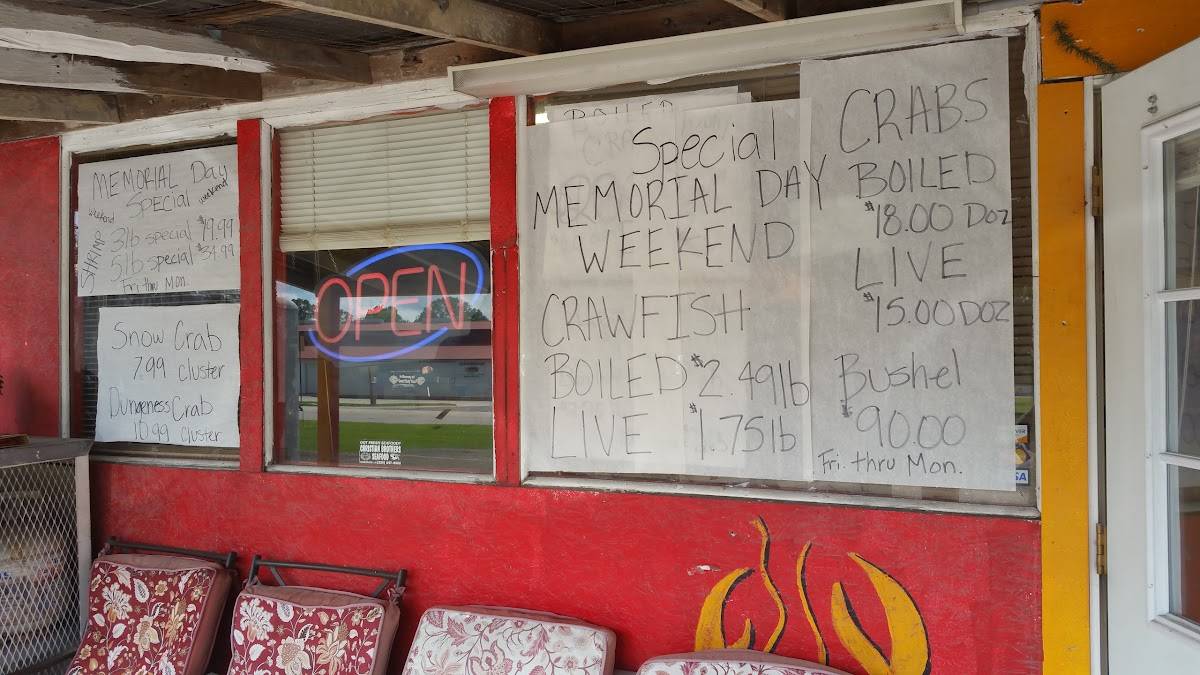 MEMORIAL Day
weekend SPECIAL weekend
SHRIMP
3lb special $19.99
5lb special $34.99
Fri. thru Mon.
Snow Crab
7.99 cluster
Dungeness Crab
10.99 cluster
OPEN
GOT FRESH SEAFOOD?
CHRISTIAN BROTHERS
SEAFOOD
BOILED
Special
MEMORIAL DAY
WEEKEND
CRAWFISH
BOILED $2.49lb
LIVE $1.75lb
CRABS
BOILED
$18.00 Doz
LIVE
$15.00 DOZ
Bushel
$90.00
Fri. thru Mon.